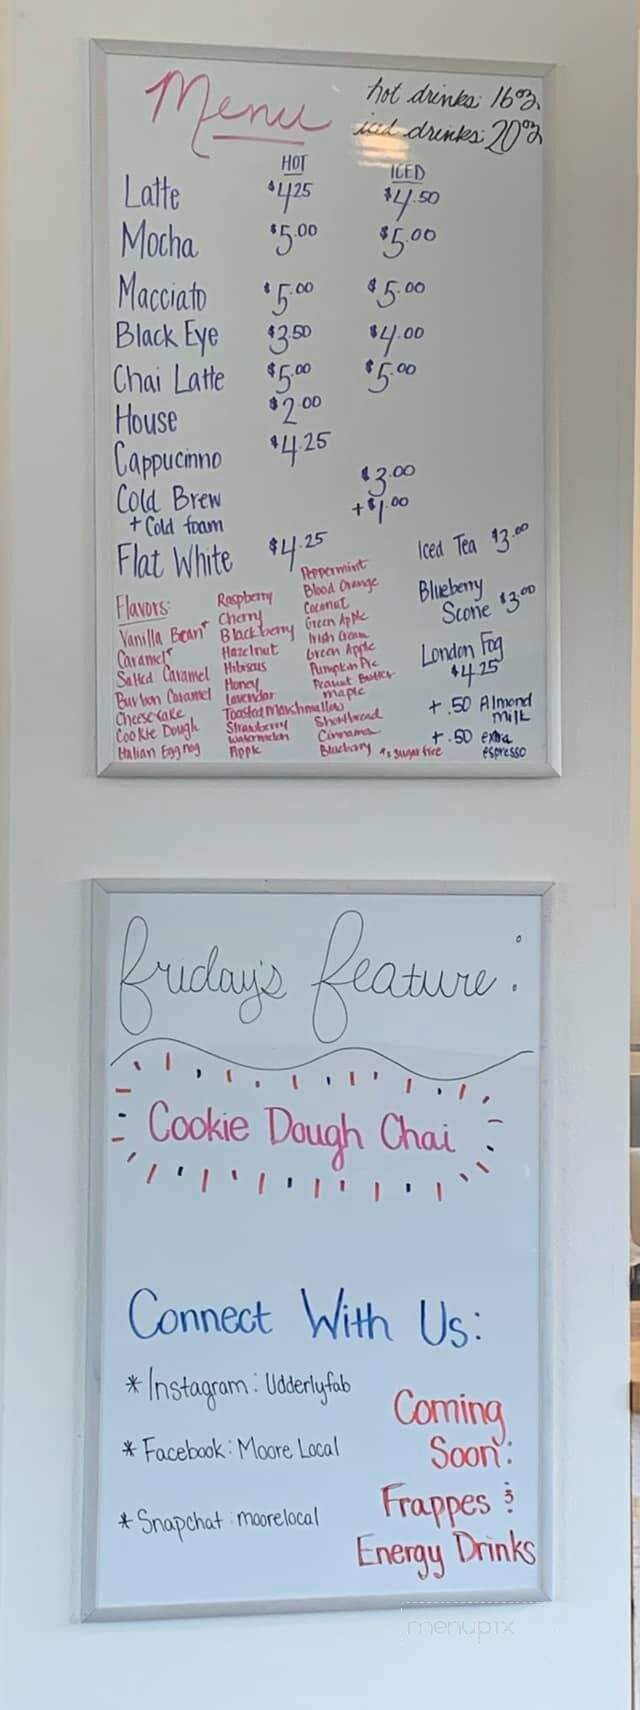 Menu
hot drinks: 16oz.
iced drinks: 20oz.
HOT ICED
Latte $4.25 $4.50
Mocha $5.00 $5.00
Macciato $5.00 $5.00
Black Eye $3.50 $4.00
Chai Latte $5.00 $5.00
House $2.00
Cappucinno $4.25
Cold Brew $3.00
+ Cold foam +$1.00
Flat White $4.25
Flavors:
Vanilla Bean*
Caramel*
Salted Caramel
Burbon Caramel
Cheesecake
Cookie Dough
Italian Eggnog
Raspberry
Cherry
Blackberry
Hazelnut
Hibiscus
Honey
Lavendar
Toasted Marshmallow
Strawberry
Watermelon
Apple
Peppermint
Blood Orange
Coconut
Green Apple
Irish Cream
Green Apple
Pumpkin Pie
Peanut Butter
maple
Shortbread
Cinnamon
Blueberry
*= sugar free
Iced Tea $3.00
Blueberry
Scone $3.00
London Fog
$4.25
+ .50 Almond
milk
+ .50 extra
espresso
friday's feature:
Cookie Dough Chai
Connect With Us:
* Instagram: Udderlyfab
* Facebook: Moore Local
* Snapchat: moorelocal
Coming
Soon:
Frappes &
Energy Drinks
menupix